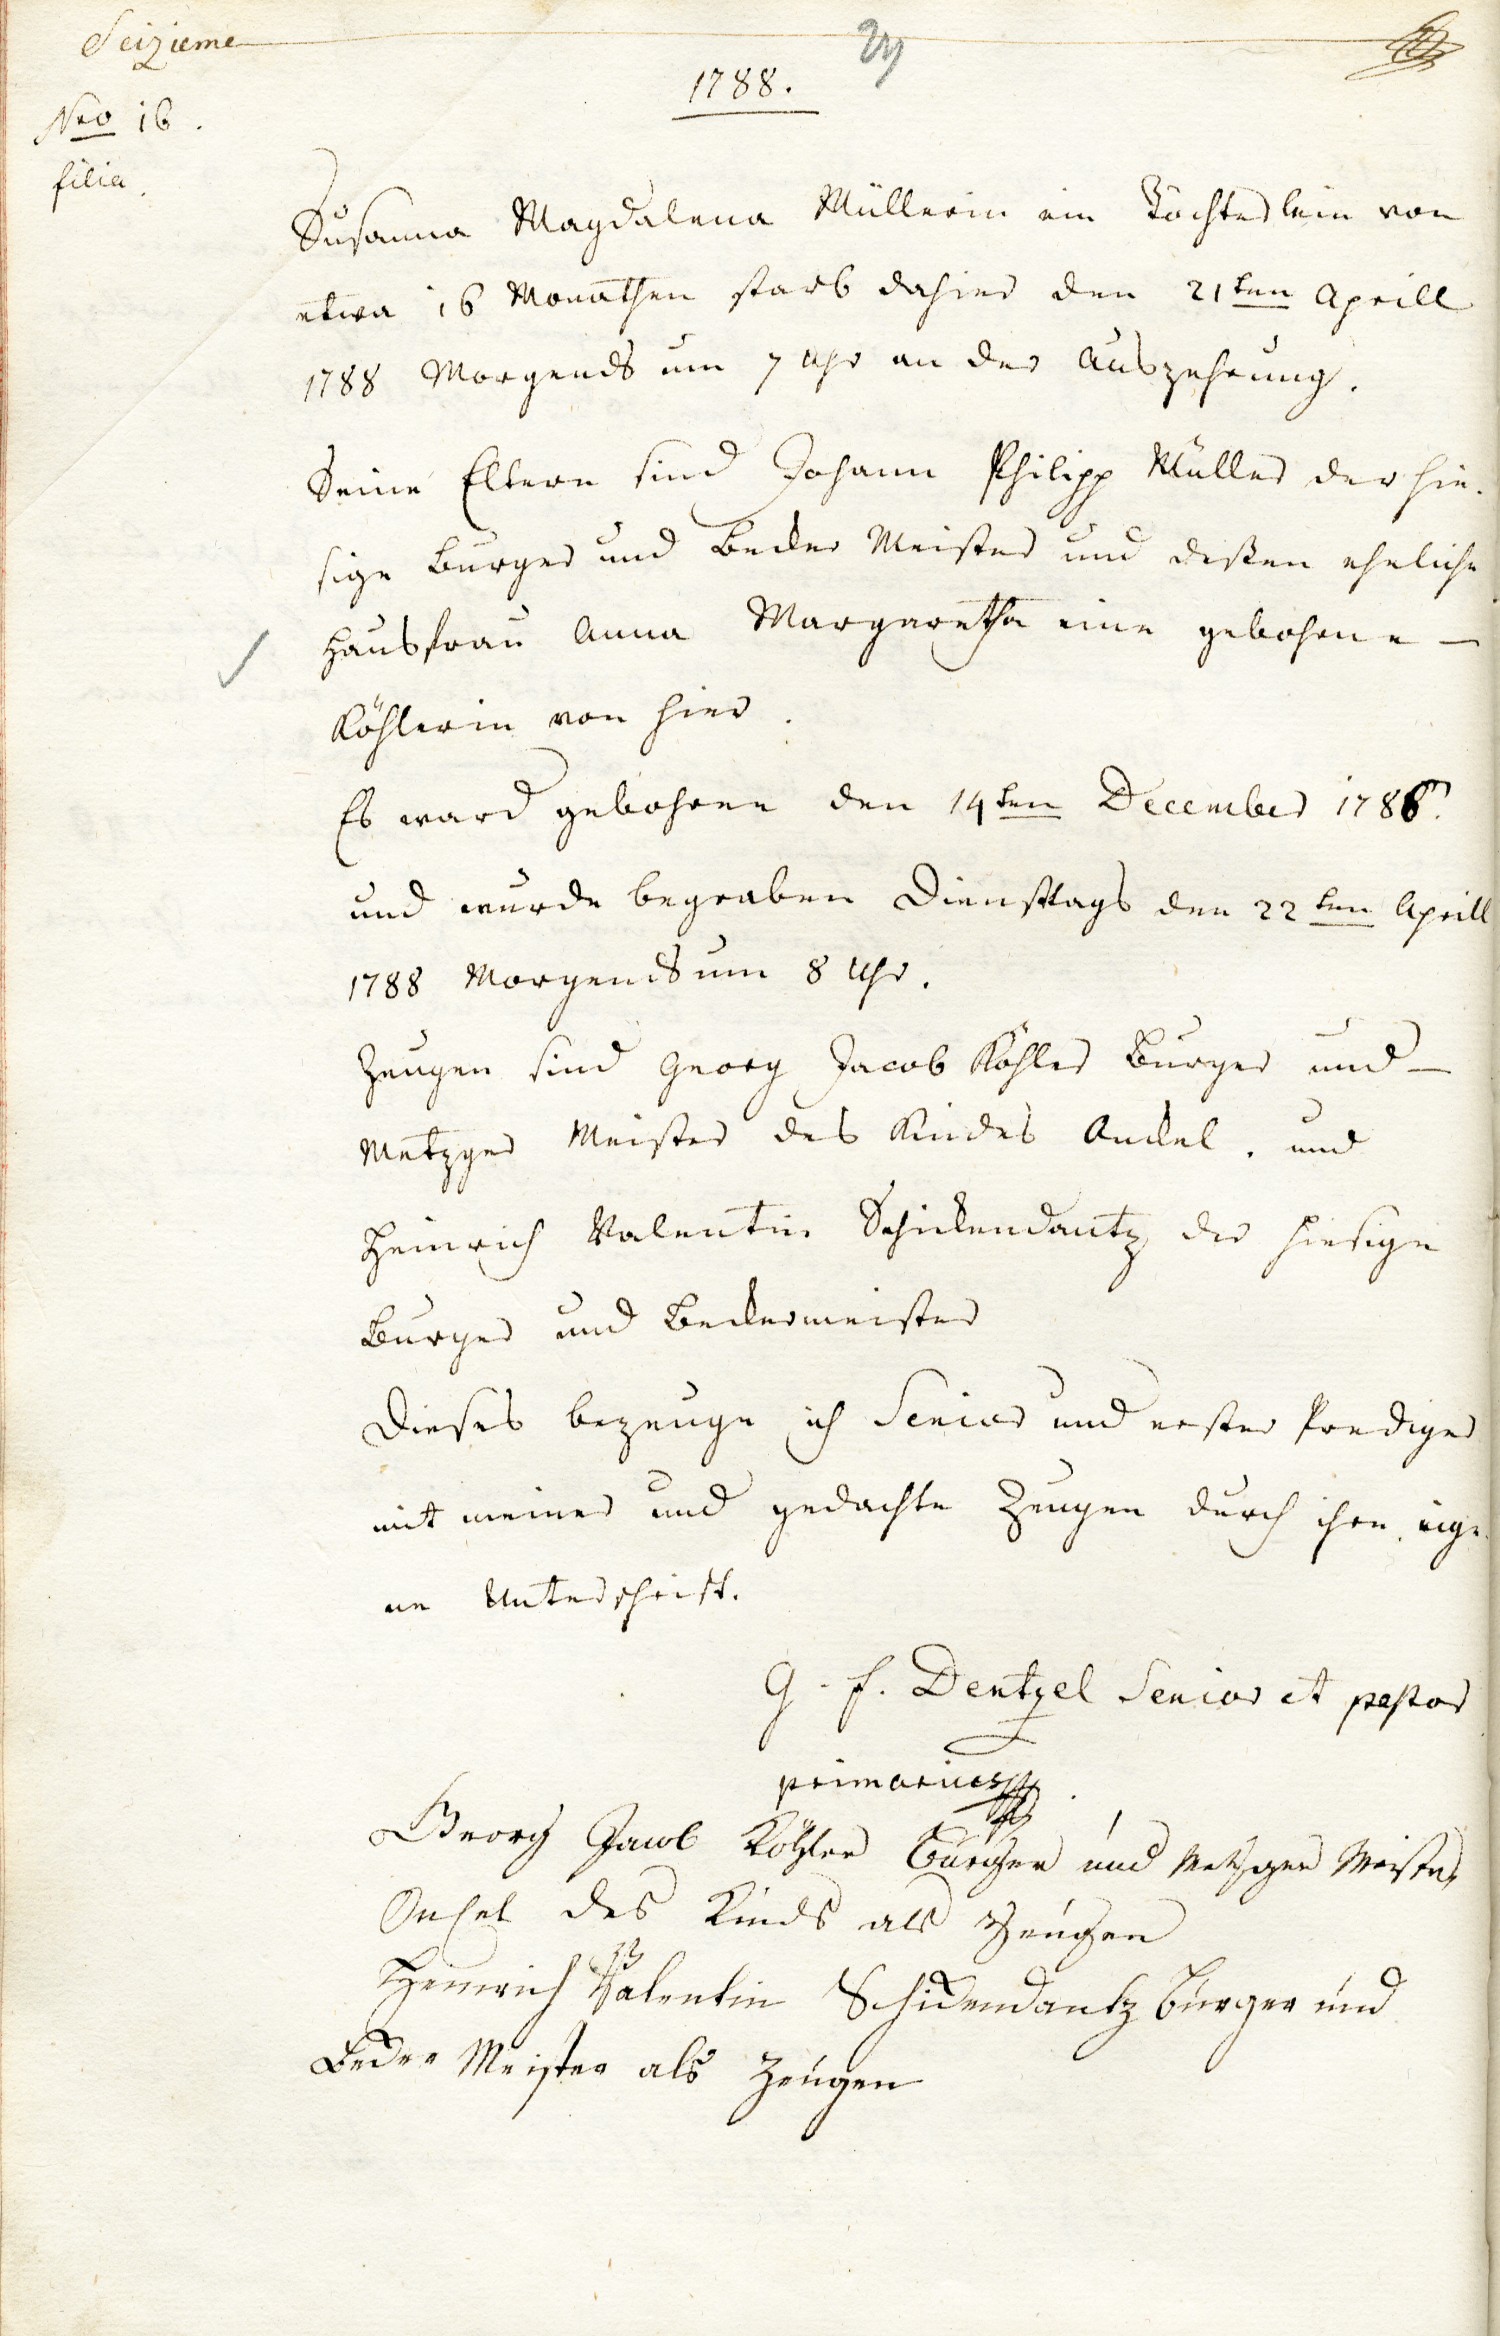 Seizieme
1788.
Nro 16.
filia.
Susanna Magdalena Müllerin ein Töchterlein von
etwa 16 Monathen starb dahier den 21ten Aprill
1788 Morgends um 7 Uhr an der Auszehrung.
Seine Eltern sind Johann Philipp Müller der hie-
sige Burger und Becker Meister und deßen eheliche
Hausfrau Anna Margaretha eine gebohrne –
Köhlerin von hier.
Es ward gebohren den 14ten December 1786.
und wurde begraben Dienstags den 22ten Aprill
1788 Morgends um 8 Uhr.
Zeugen sind Georg Jacob Köhler Burger und –
Metzger Meister des Kindes Onckel. und
Heinrich Valentin Schickendantz der hiesige
Burger und Beckermeister
Dieses bezeuge ich Senior und erster Prediger
mit meiner und gedachte Zeugen durch ihre eige-
ne Unterschrift.
G. F. Dentzel Senior et pastor
primarius
Georg Jacob Köhler Burger und Metzger Meister
Onckel des Kinds als Zeugen
Heinrich Valentin Schickendantz Burger und
Becker Meister als Zeugen